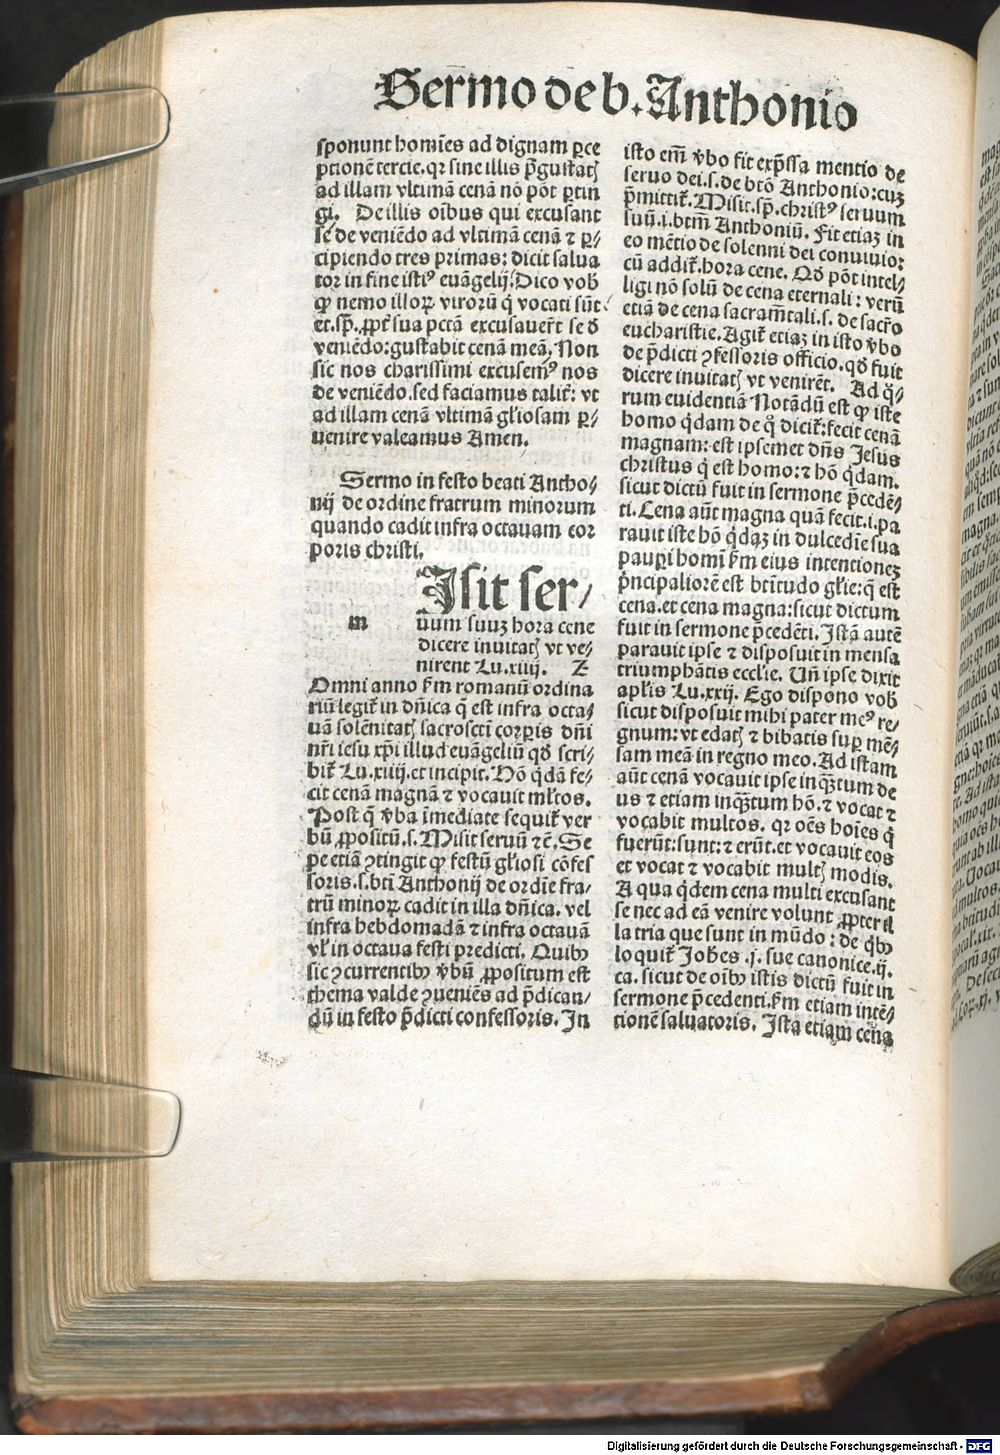 Sermo de b. Anthonio
sponunt homīes ad dignam ꝑce
ptionē tercie. qꝛ sine illis p̄gustatꝭ
ad illam vltimā cenā nō pōt ꝑtin
gi. De illis oībus qui excusant
se de veniēdo ad vltimā cenā ⁊ ꝑ⸗
cipiendo tres primas: dicit salua
tor in fine istiꝰ euāgelij. Dico vob̄
ꝙ nemo illoꝝ virorū q̇ vocati sūt
et.sp̄. ꝓpt̄ sua pctā excusauer̄t se d̄
veniēdo: gustabit cenā meā. Non
sic nos charissimi excusemꝰ nos
de veniēdo. sed faciamus talit̄: vt
ad illam cenā vltimā gl̄iosam ꝑ⸗
uenire valeamus Amen.
Sermo in festo beati Antho⸗
nij de ordine fratrum minorum
quando cadit infra octauam cor
poris christi.
Isit ser⸗
m uum suuꝫ hora cene
dicere inuitatꝭ vt ve⸗
nirent Lu.xiiij. Z
Omni anno ẜm romanū ordina
riū legit̄ in dn̄ica q̄ est infra octa⸗
uā solēnitatꝭ sacroscti corꝑis dn̄i
nr̄i iesu xp̄i illud euāgeliū qd̄ scri⸗
bit̄ Lu.xiiij. et incipit. Hō q̇dā fe⸗
cit cenā magnā ⁊ vocauit ml̄tos.
Post q̄ v̄ba īmediate sequit̄ ver
bū ꝓpositū.s. Misit seruū ⁊c̄. Se
pe etiā ꝯtingit ꝙ festū gl̄iosi cōfes
soris.s.bti Anthonij de ordīe fra⸗
trū minoꝝ cadit in illa dn̄ica. vel
infra hebdomadā ⁊ infra octauā
vl̄ in octaua festi predicti. Quibꝰ
sic ꝯcurrentibꝰ v̄bū ꝓpositum est
thema valde ꝯueniēs ad p̄dican⸗
dū in festo p̄dicti confessoris. In
isto em̄ v̄bo fit exp̄ssa mentio de
seruo dei.s.de btō Anthonio: cuꝫ
p̄mittit̄. Misit.sp̄.christꝰ seruum
suū.i.btm̄ Anthoniū. Fit etiaꝫ in
eo mētio de solenni dei conuiuio:
cū addit̄. hora cene. Qd̄ pōt intel⸗
ligi nō solū de cena eternali: verū
etiā de cena sacram̄tali.s. de sacr̄o
eucharistie. Agit̄ etiaꝫ in isto v̄bo
de p̄dicti ꝯfessoris officio. qd̄ fuit
dicere inuitatꝭ vt venirēt. Ad q̄⸗
rum euidentiā Notādū est ꝙ iste
homo q̇dam de q̊ dicit̄: fecit cenā
magnam: est ipsemet dn̄s Jesus
christus q̇ est homo: ⁊ hō q̇dam.
sicut dictū fuit in sermone p̄cedē⸗
ti. Cena aūt magna quā fecit.i.pa
rauit iste hō q̇daꝫ in dulcedīe sua
pauꝑi homī ẜm eius intentioneꝫ
ṗncipaliorē est btītudo gl̄ie: q̄ est
cena. et cena magna: sicut dictum
fuit in sermone p̄cedēti. Istā autē
parauit ipse ⁊ disposuit in mensa
triumphātis eccl̄ie. Un̄ ipse dixit
apl̄is Lu.xxij. Ego dispono vob̄
sicut disposuit mihi pater meꝰ re⸗
gnum: vt edatꝭ ⁊ bibatis suꝑ mē⸗
sam meā in regno meo. Ad istam
aūt cenā vocauit ipse inq̄ꝫtum de
us ⁊ etiam inq̄ꝫtum hō. ⁊ vocat ⁊
vocabit multos. qꝛ oēs hoīes q̇
fuerūt: sunt: ⁊ erūt. et vocauit eos
et vocat ⁊ vocabit multꝭ modis.
A qua q̇dem cena multi excusant
se nec ad eā venire volunt ꝓpter il
la tria que sunt in mūdo: de q̇bꝰ
loquit̄ Joh̄es .j. sue canonice.ij.
ca. sicut de oībꝰ istis dictū fuit in
sermone p̄cedenti. ẜm etiam intē⸗
tionē saluatoris. Ista etiam cena
Digitalisierung gefördert durch die Deutsche Forschungsgemeinschaft - DFG